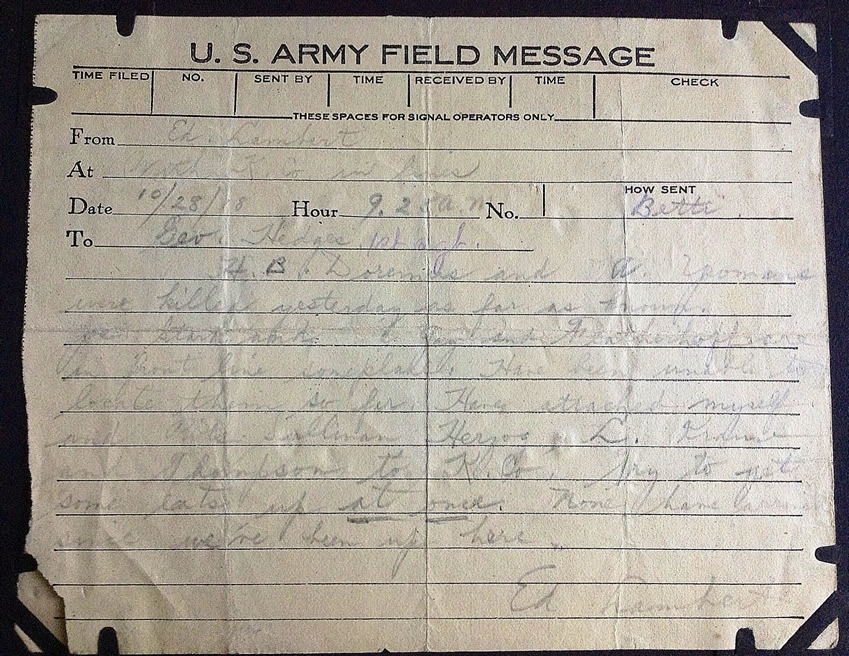 U. S. ARMY FIELD MESSAGE
TIME FILED NO. SENT BY TIME RECEIVED BY TIME CHECK
THESE SPACES FOR SIGNAL OPERATORS ONLY
From Ed. Lambert
At With K. Co in
HOW SENT
Date 10/28/18 Hour 9.25 a.m No.
To Geo. Hedges 1st sgt.
H. B. Doremus and A. Yeomans
were killed yesterday as far as known.
and Featherhoff are
in front line someplace. Have been unable to
locate them so far. Have attached myself
and Sullivan Herzog, L.
and Thompson to K. Co. Try to get
some eats up at once. None have
since we've been up here.
Ed Lambert